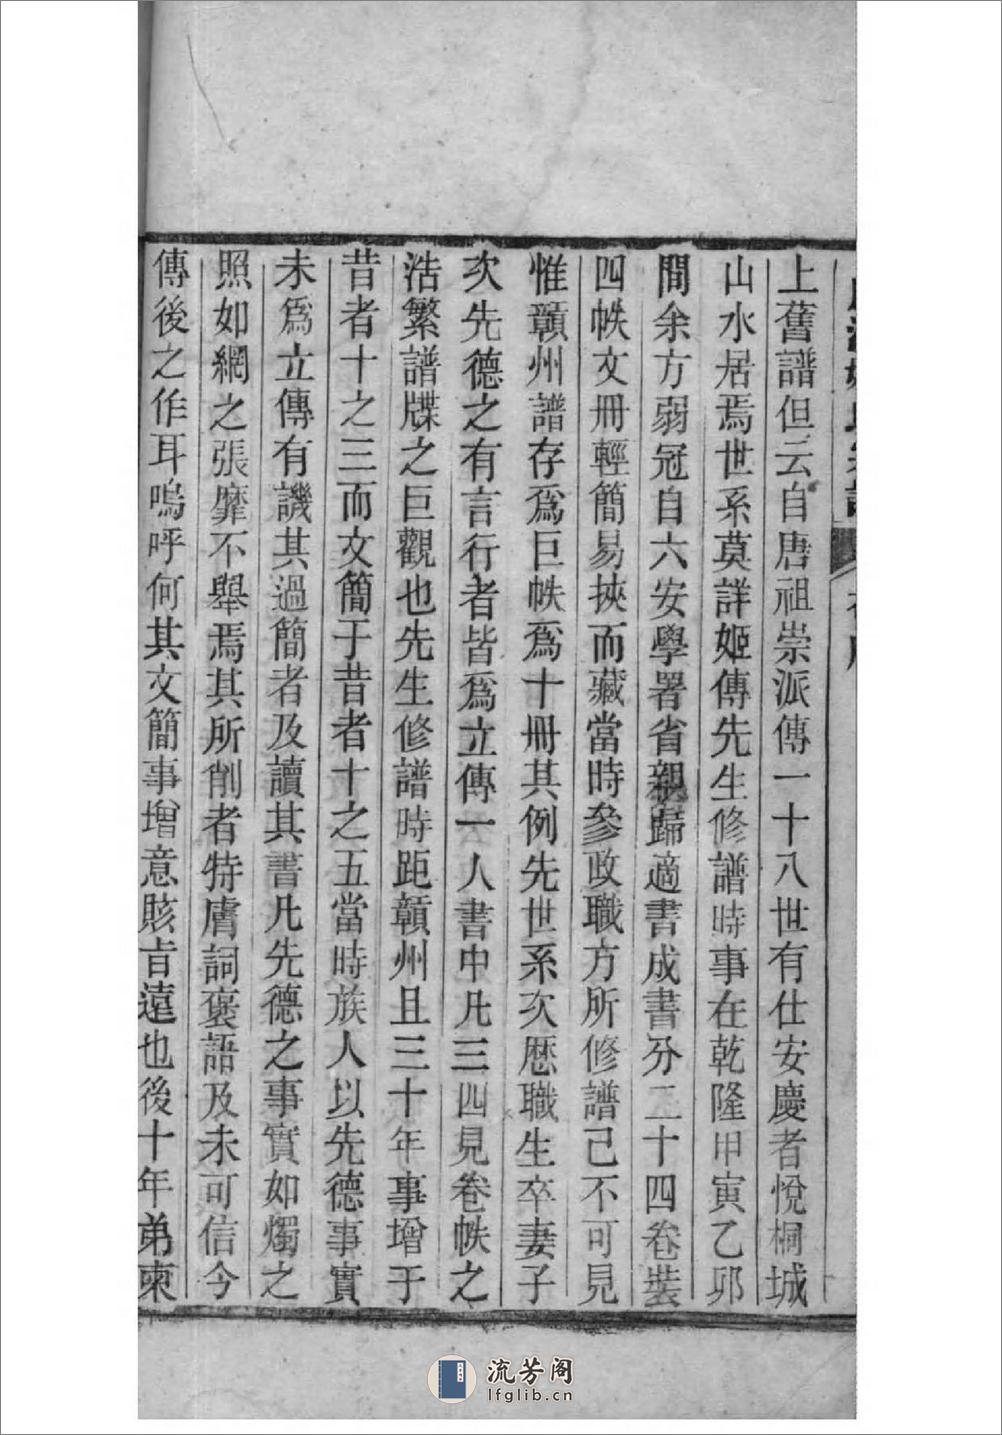 上舊譜但云自唐祖崇派傳一十八世有仕安慶者悅桐城
山水居焉世系莫詳姬傳先生修譜時事在乾隆甲寅乙卯
間余方弱冠自六安學署省親歸適書成書分二十四卷裝
四帙文冊輕簡易挾而藏當時參政職方所修譜己不可見
惟贛州譜存爲巨帙爲十冊其例先世系次歷職生卒妻子
次先德之有言行者皆爲立傳一人書中凡三四見卷帙之
浩繁譜牒之巨觀也先生修譜時距贛州且三十年事增于
昔者十之三而文簡于昔者十之五當時族人以先德事實
未爲立傳有譏其過簡者及讀其書凡先德之事實如燭之
照如網之張靡不舉焉其所削者特膚詞褒語及未可信今
傳後之作耳嗚呼何其文簡事增意賅旨遠也後十年弟柬
流芳阁
lfglib.cn